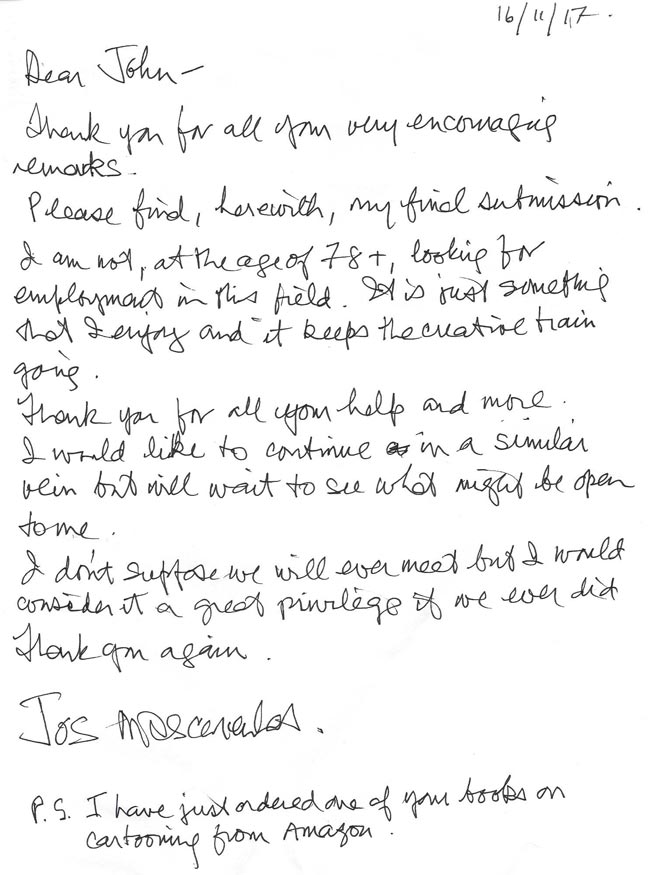 16/11/17.
Dear John -
Thank you for all your very encouraging
remarks.
Please find, herewith, my final submission.
I am not, at the age of 78+, looking for
employment in this field. It is just something
that I enjoy and it keeps the creative train
going.
Thank you for all your help and more.
I would like to continue in a similar
vein but will wait to see what might be open
to me.
I don't suppose we will ever meet but I would
consider it a great privilege if we ever did
Thank you again.
Jos
P.S. I have just ordered one of your books on
cartooning from Amazon.